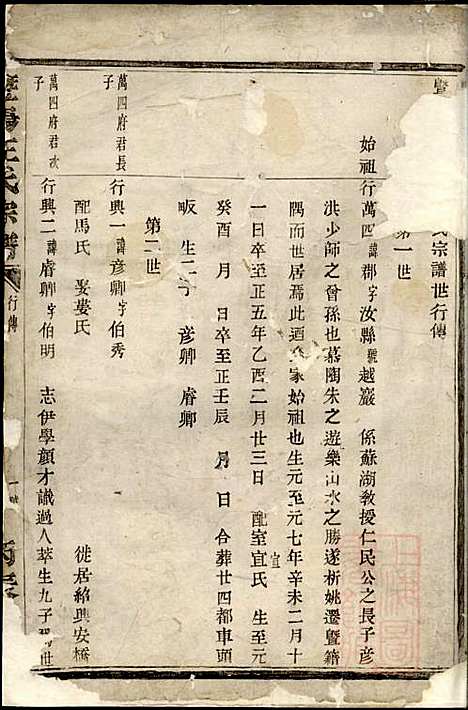 暨
氏宗譜世行傳
第一世
始祖行萬四諱郡字汝縣號越巖 係蘇湖教授仁民公之長子彥
洪少師之曾孫也慕陶朱之遊樂山水之勝遂析姚遷暨籍
隅而世居焉此迺 家始祖也生元至元七年辛未二月十
一日卒至正五年乙酉二月廿三日 配室宜氏 生至元
宣
癸酉 月 日卒至正壬辰 月 日 合葬廿四都車頭
畈 生二子 彥卿 睿卿
第二世
萬四府君長子 行興一諱彥卿字伯秀
配馬氏 娶婁氏 徙居紹興安橋
萬四府君次子 行興二諱睿卿字伯明 志伊學顏才識過人萃生九子 世
暨陽 氏宗譜
行傳
一